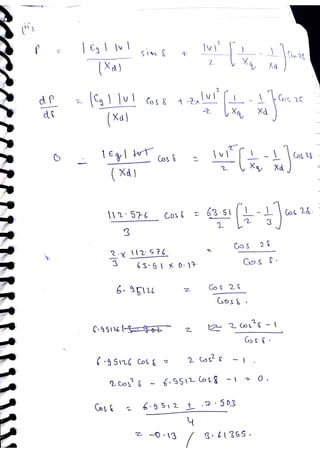 (ii)
P = |Eg| |v| / (Xd) sin δ + |v|² / 2 [ 1/Xq - 1/Xd ] Sin 2δ
dP/dδ = |Eg| |v| / (Xd) Cos δ + 2x |v|² / 2 [ 1/Xq - 1/Xd ] Cos 2δ
0 = |Eg| / (Xd) Cos δ = |v|² / 2 [ 1/Xq - 1/Xd ] Cos 2δ
112.576 / 3 Cos δ = 63.51 / 2 [ 1/2 - 1/3 ] Cos 2δ.
2/3 x 112.576 / 63.51 x 0.17 = Cos 2δ / Cos δ.
6.95126 = Cos 2δ / Cos δ.
6.95126 = 2 Cos²δ - 1 / Cos δ.
6.95126 Cos δ = 2 Cos²δ - 1.
2 Cos²δ - 6.9512 Cos δ - 1 = 0.
Cos δ = 6.9512 ± 7.503 / 4
= -0.13 / 3.61355.